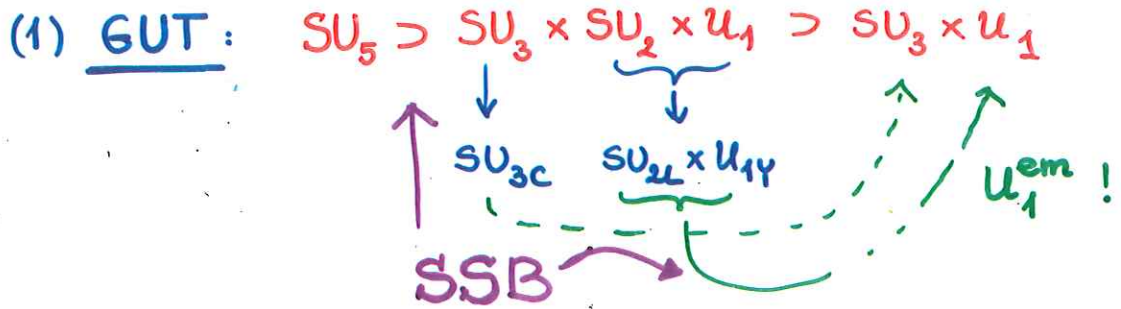 (1) GUT: SU₅ ⊃ SU₃ × SU₂ × U₁ ⊃ SU₃ × U₁
SU₃C SU₂L × U₁Y U₁ᵉᵐ !
SSB